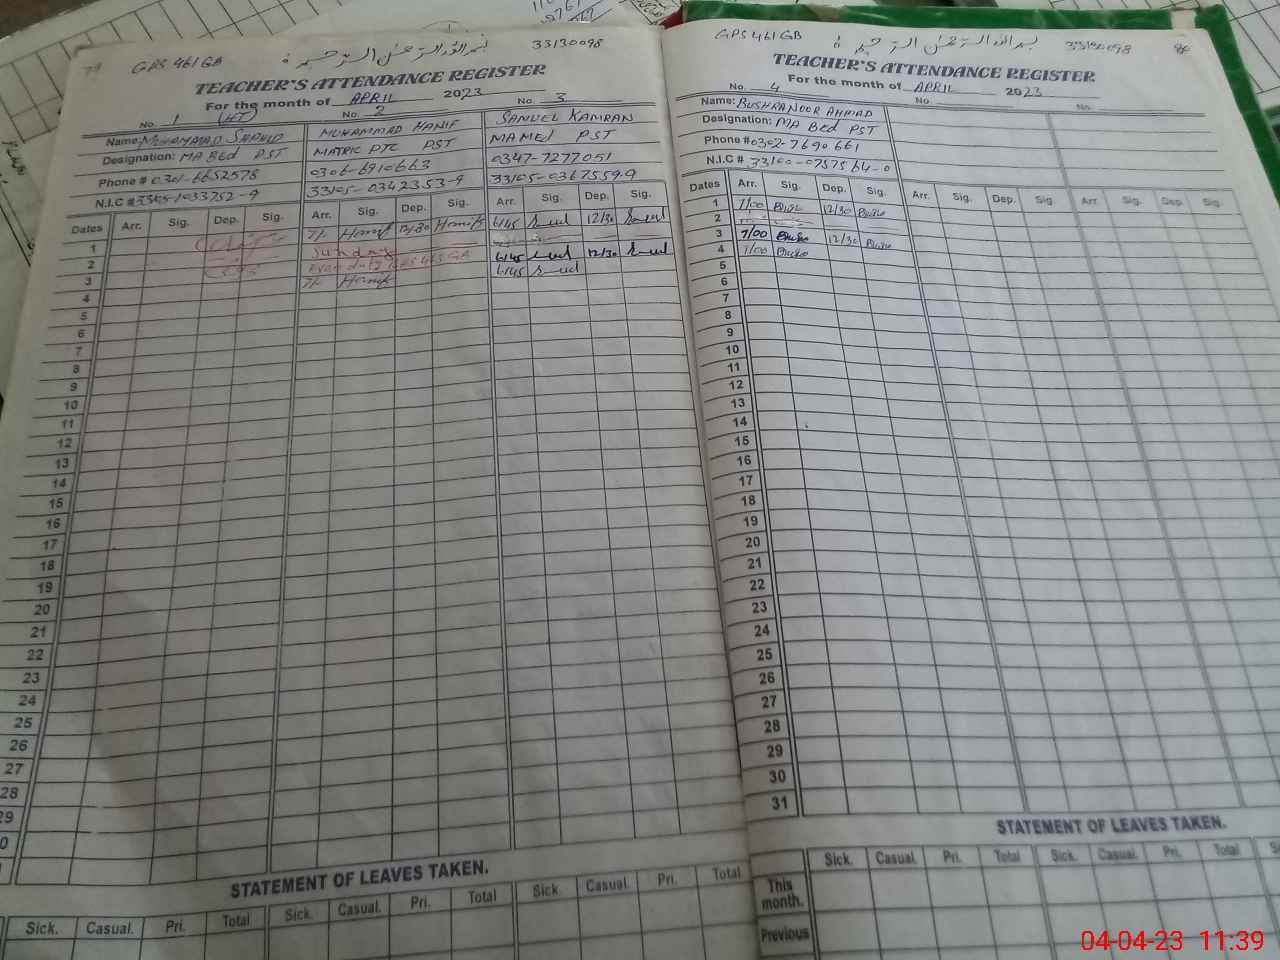 GPS 461 GB بسم الله الرحمن الرحيم 33130098
TEACHER'S ATTENDANCE REGISTER
For the month of APRIL 2023
No. 1 (HT) No. 2 No. 3
Name: MUHAMMAD MUHAMMAD HANIF SAMUEL KAMRAN
Designation: MA Bed PST MATRIC PTC PST MA MEd PST
Phone # 0301-6652578 0306-6910663 0347-7277051
N.I.C # 33105-0342353-9 33105-0367559-9
Dates Arr. Sig. Dep. Sig. Arr. Sig. Dep. Sig. Arr. Sig. Dep. Sig.
1 7/. Hanif 12/30 Hanif 6/45 12/30
2 Sunday
3 6/45 12/30
4 7/. Hanif 6/45
5
6
7
8
9
10
11
12
13
14
15
16
17
18
19
20
21
22
23
24
25
26
27
28
29
0
STATEMENT OF LEAVES TAKEN.
Sick. Casual. Pri. Total Sick. Casual. Pri. Total Sick. Casual. Pri. Total
GPS 461 GB بسم الله الرحمن الرحيم 33130098
TEACHER'S ATTENDANCE REGISTER
For the month of APRIL 2023
No. 4 No. No.
Name: BUSHRA NOOR AHMAD
Designation: MA Bed PST
Phone # 0302-7690661
N.I.C # 33100-0757564-0
Dates Arr. Sig. Dep. Sig. Arr. Sig. Dep. Sig. Arr. Sig. Dep. Sig.
1 7/00 12/30
2
3 7/00 12/30
4 7/00
5
6
7
8
9
10
11
12
13
14
15
16
17
18
19
20
21
22
23
24
25
26
27
28
29
30
31
STATEMENT OF LEAVES TAKEN.
Sick. Casual. Pri. Total Sick. Casual. Pri. Total
This month.
Previous
04-04-23 11:39